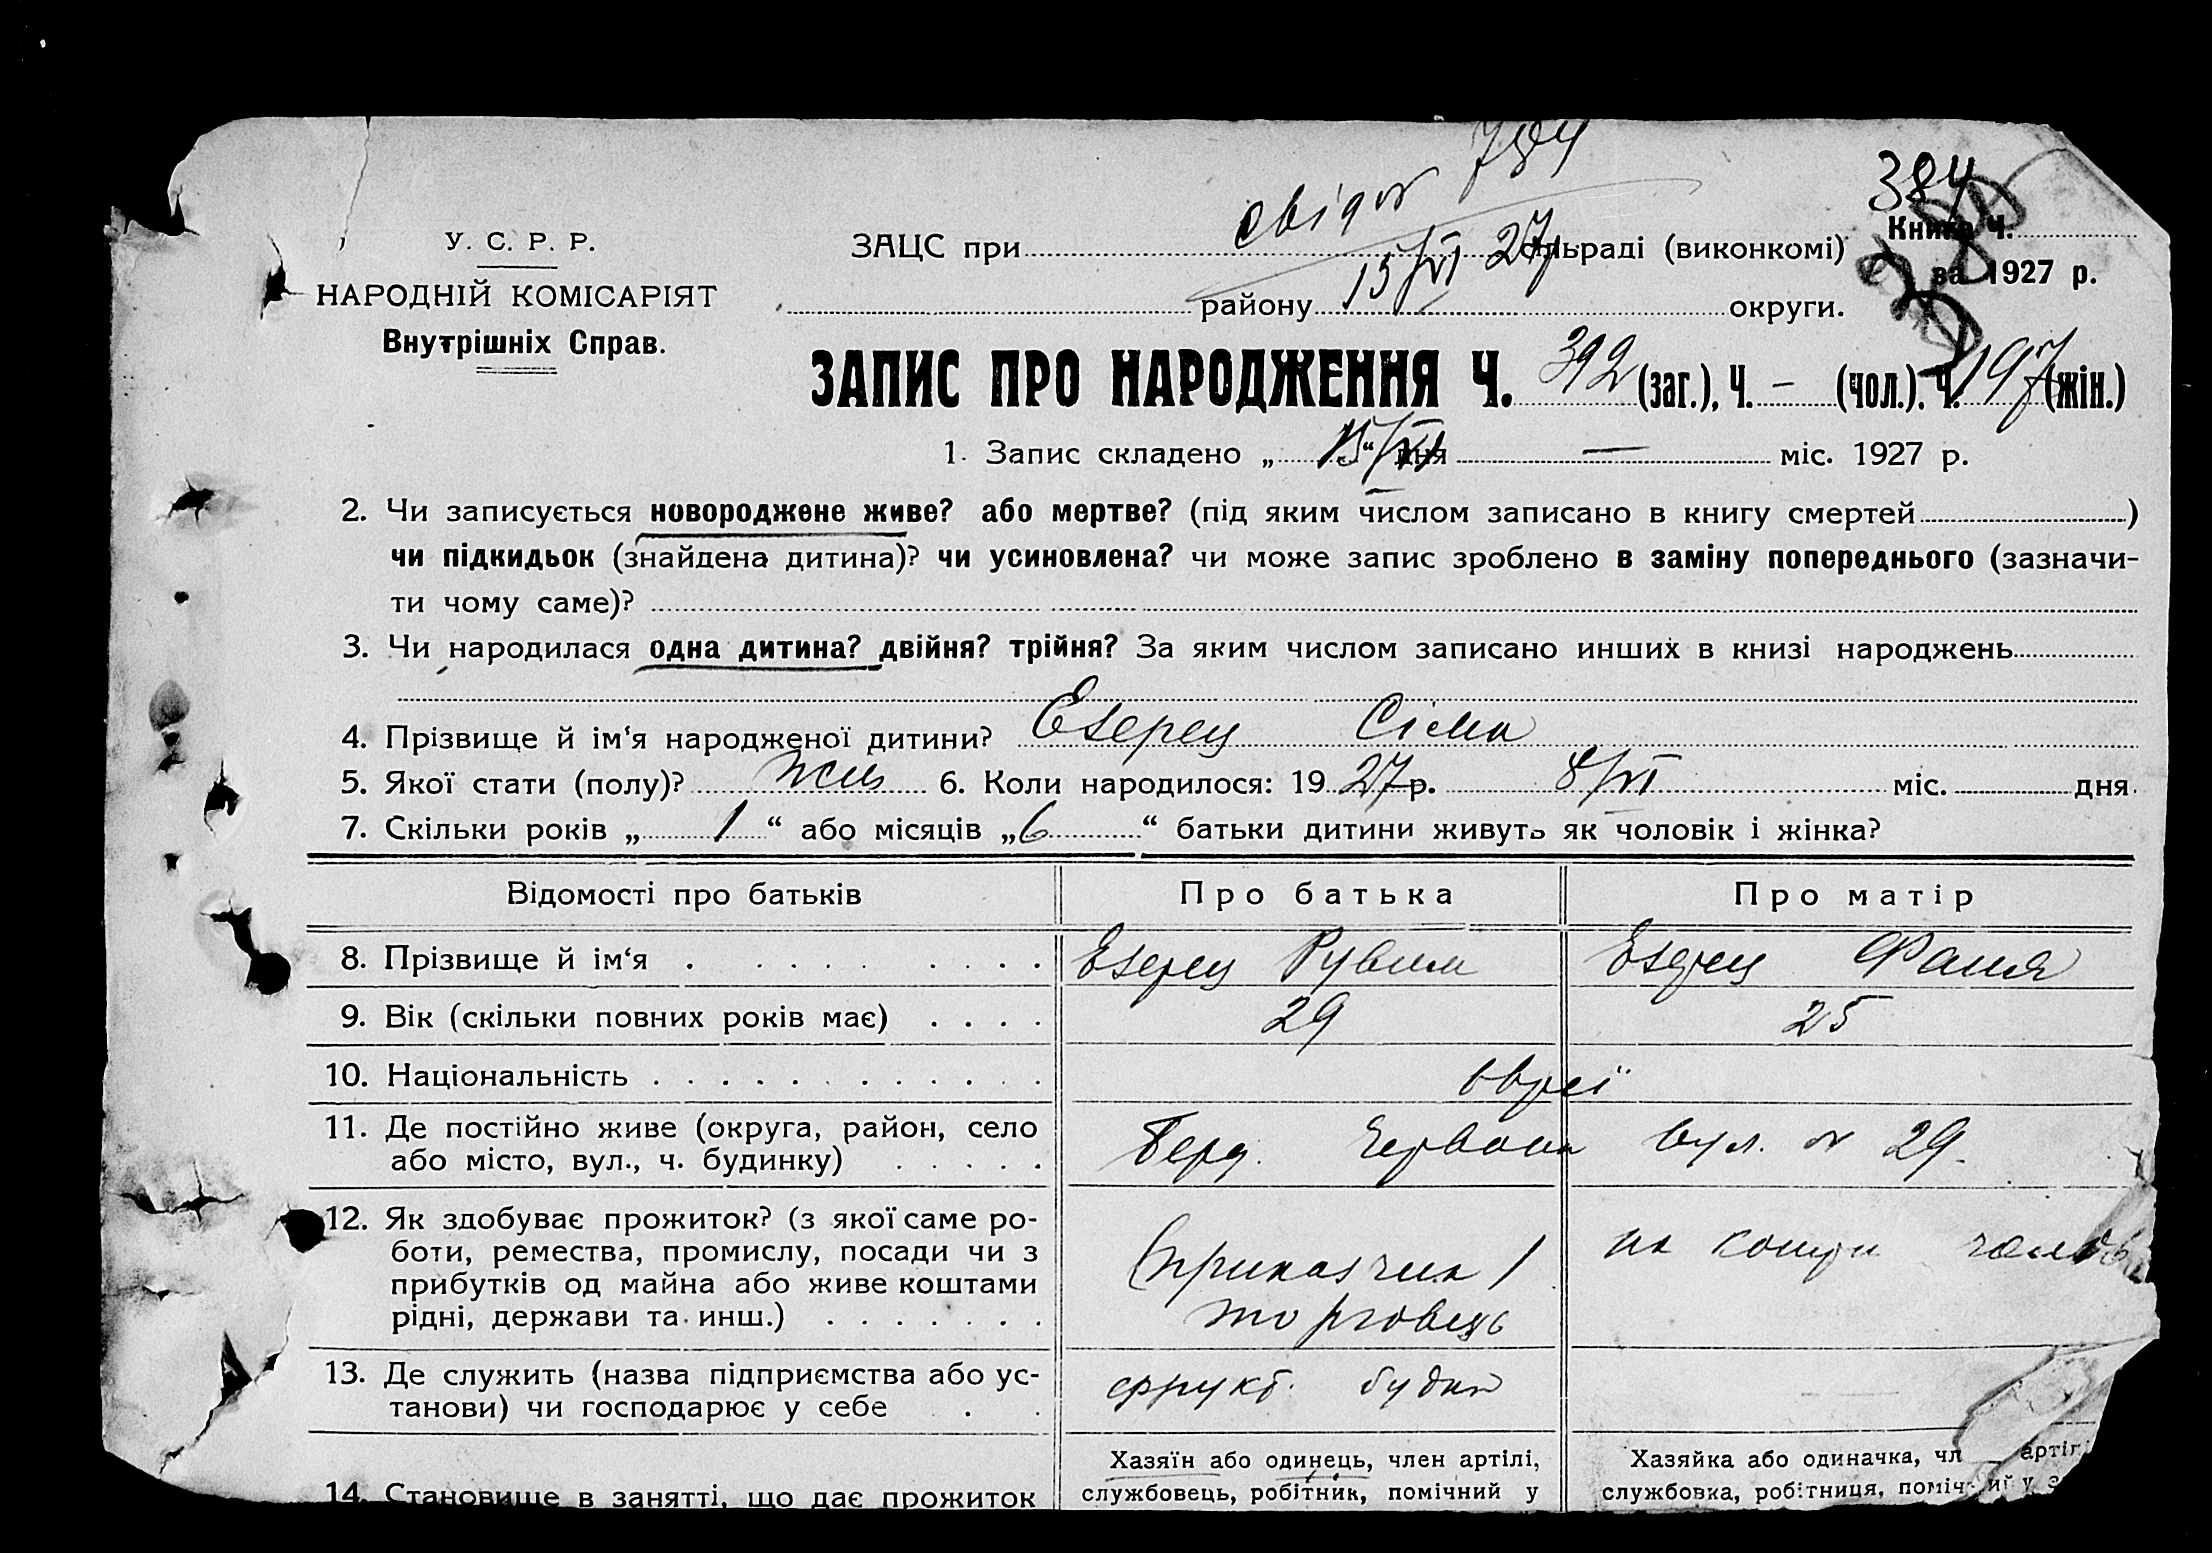 384
свідоц 784
У. С. Р. Р.
ЗАЦС при сільраді (виконкомі)
Книга Ч.
15/VI 27
за 1927 р.
НАРОДНІЙ КОМІСАРІЯТ
району округи.
Внутрішніх Справ.
ЗАПИС ПРО НАРОДЖЕННЯ Ч. 392 (заг.), Ч. – (чол.), Ч. 197 (жін.)
1. Запис складено „15/VI“ дня — міс. 1927 р.
2. Чи записується новороджене живе? або мертве? (під яким числом записано в книгу смертей )
чи підкидьок (знайдена дитина)? чи усиновлена? чи може запис зроблено в заміну попереднього (зазначи-
ти чому саме)?
3. Чи народилася одна дитина? двійня? трійня? За яким числом записано инших в книзі народжень
4. Прізвище й ім‘я народженої дитини? Езерец Сіма
5. Якої стати (полу)? жін 6. Коли народилося: 1927 р. 8/VI міс. дня
7. Скільки років „1“ або місяців „6“ батьки дитини живуть як чоловік і жінка?
Відомості про батьків Про батька Про матір
8. Прізвище й ім‘я . Езерец Рувим Езерец Фаня
9. Вік (скільки повних років має) 29 25
10. Національність євреї
11. Де постійно живе (округа, район, село
або місто, вул., ч. будинку) Берд. Червона вул. № 29
12. Як здобуває прожиток? (з якої саме ро-
боти, ремества, промислу, посади чи з
прибутків од майна або живе коштами
рідні, держави та инш.)
(приказчик)
торговець
на кошти чолов
13. Де служить (назва підприємства або ус-
танови) чи господарює у себе
фрукт. будка
14. Становище в занятті, що дає прожиток
Хазяїн або одинець, член артілі,
службовець, робітник, помічний у
Хазяйка або одиначка, чл артіл
службовка, робітниця, поміч